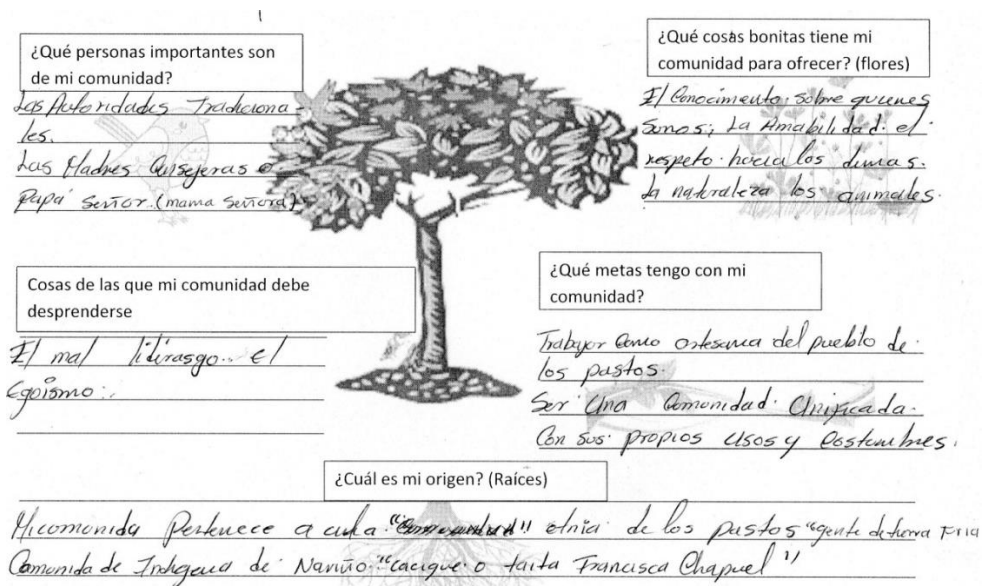 ¿Qué personas importantes son
de mi comunidad?
Las Autoridades Tradiciona-
les.
Las Madres Consejeras o
papá Señor. (mama Señora)
¿Qué cosas bonitas tiene mi
comunidad para ofrecer? (flores)
El Conocimiento sobre quienes
Somos; La Amabilidad. el
respeto hacia los dimas.
la naturaleza los animales.
Cosas de las que mi comunidad debe
desprenderse
El mal lidirasgo. el
Egoismo.
¿Qué metas tengo con mi
comunidad?
Trabajar como artesana del pueblo de
los pastos.
Ser Una Comunidad Unificada.
Con sus propios Usos y Costumbres.
¿Cuál es mi origen? (Raíces)
Micomunida Pertenece a etnia de los pastos "gente de tierra Fria
Comunida de Indigena de Nariño "Cacique o taita Francisca Chapuel"